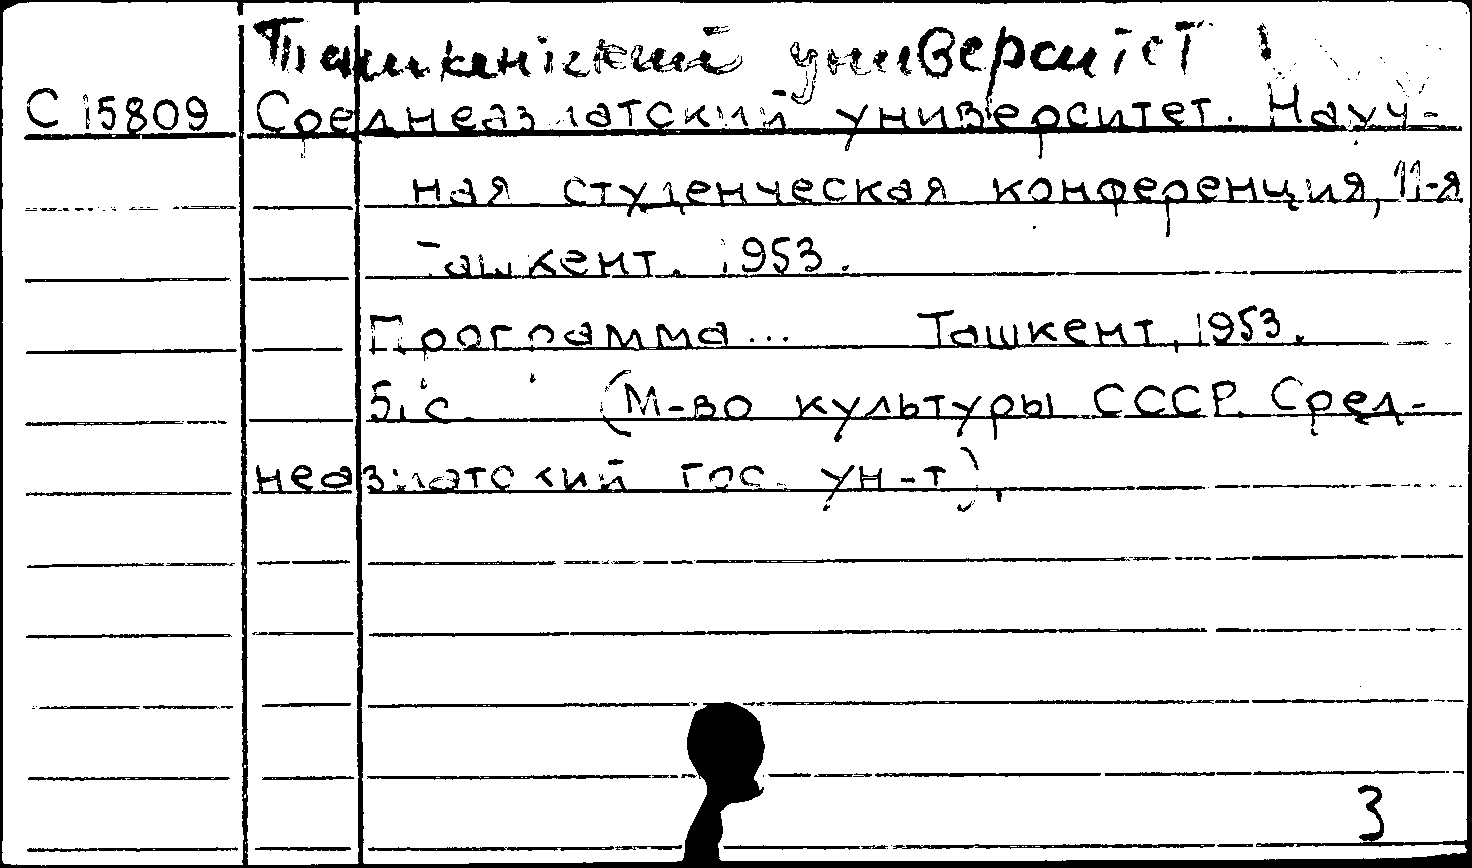 Ташкентский университет !
С 15809 Среднеазиатский университет. Науч-
ная студенческая конференция, 11-я
Ташкент. 1953.
Программа... Ташкент, 1953.
с. (М-во культуры СССР. Сред-
неазиатский гос. ун-т).
3